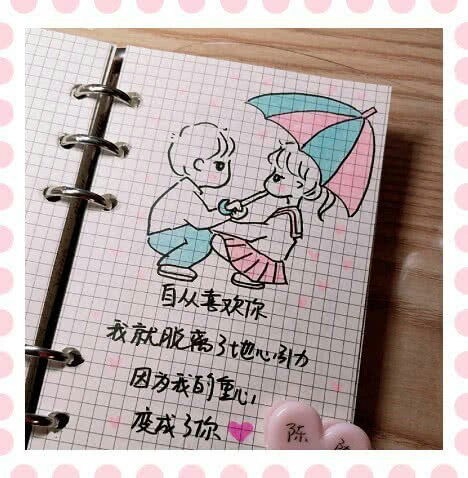 自从喜欢你
我就脱离了地心引力
因为我的重心，
变成了你
陈
陈